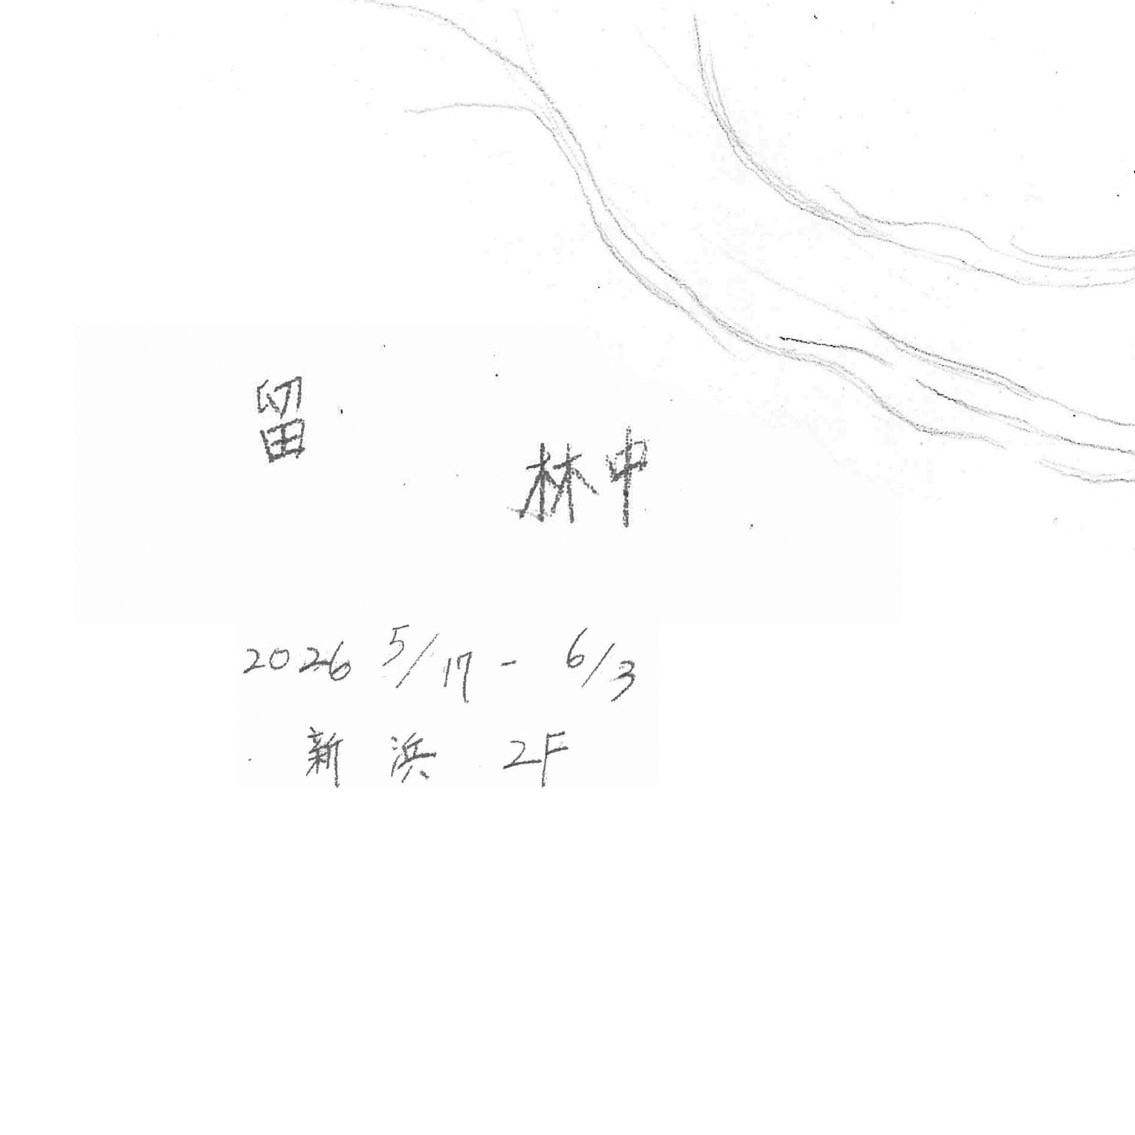 留
林中
2026 5/17 - 6/3
新浜 2F